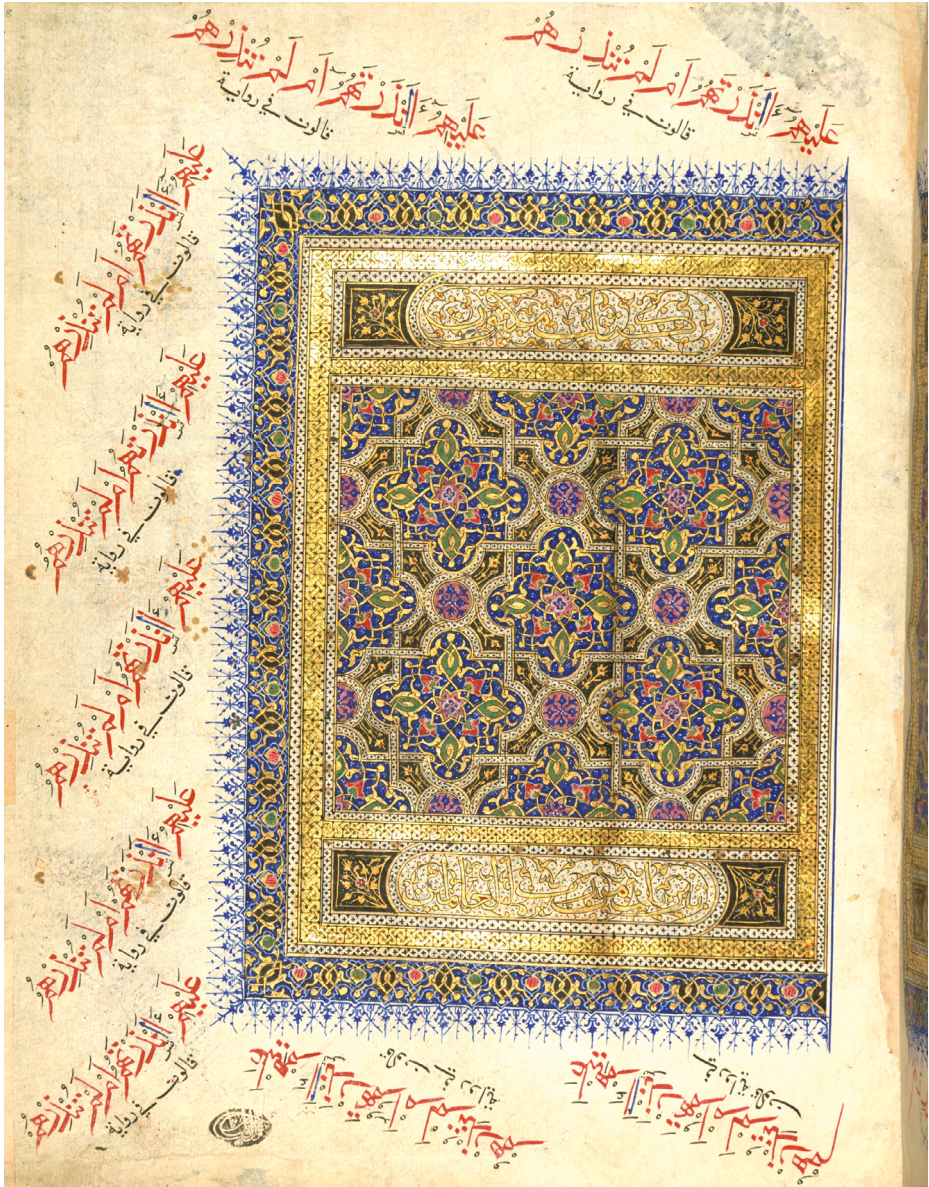 عَلَيْهِمُ ءَانْذَرْتَهُمُ أَمْ لَمْ تُنْذِرْهُمُ
قالون في رواية
عَلَيْهِمُ ءَانْذَرْتَهُمُ أَمْ لَمْ تُنْذِرْهُمُ
قالون في رواية
في كتاب مكنون
عَلَيْهِمُ ءَانْذَرْتَهُمُ أَمْ لَمْ تُنْذِرْهُمُ
قالون في رواية
عَلَيْهِمُ ءَانْذَرْتَهُمُ أَمْ لَمْ تُنْذِرْهُمُ
قالون في رواية
عَلَيْهِمُ ءَانْذَرْتَهُمُ أَمْ لَمْ تُنْذِرْهُمُ
قالون في رواية
عَلَيْهِمُ ءَانْذَرْتَهُمُ أَمْ لَمْ تُنْذِرْهُمُ
قالون في رواية
عَلَيْهِمُ ءَانْذَرْتَهُمُ أَمْ لَمْ تُنْذِرْهُمُ
قالون في رواية
تنزيل من رب العالمين
عَلَيْهِمُ ءَانْذَرْتَهُمُ أَمْ لَمْ تُنْذِرْهُمُ
في رواية قالون
عَلَيْهِمُ ءَانْذَرْتَهُمُ أَمْ لَمْ تُنْذِرْهُمُ
قالون في رواية